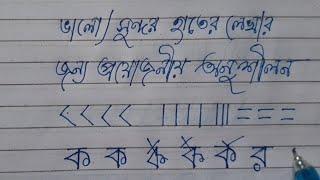 ভালো/সুন্দর হাতের লেখার
জন্য প্রয়োজনীয় অনুশীলন
< < < < | | | | ||| = = =
ক ক ক ক ক র